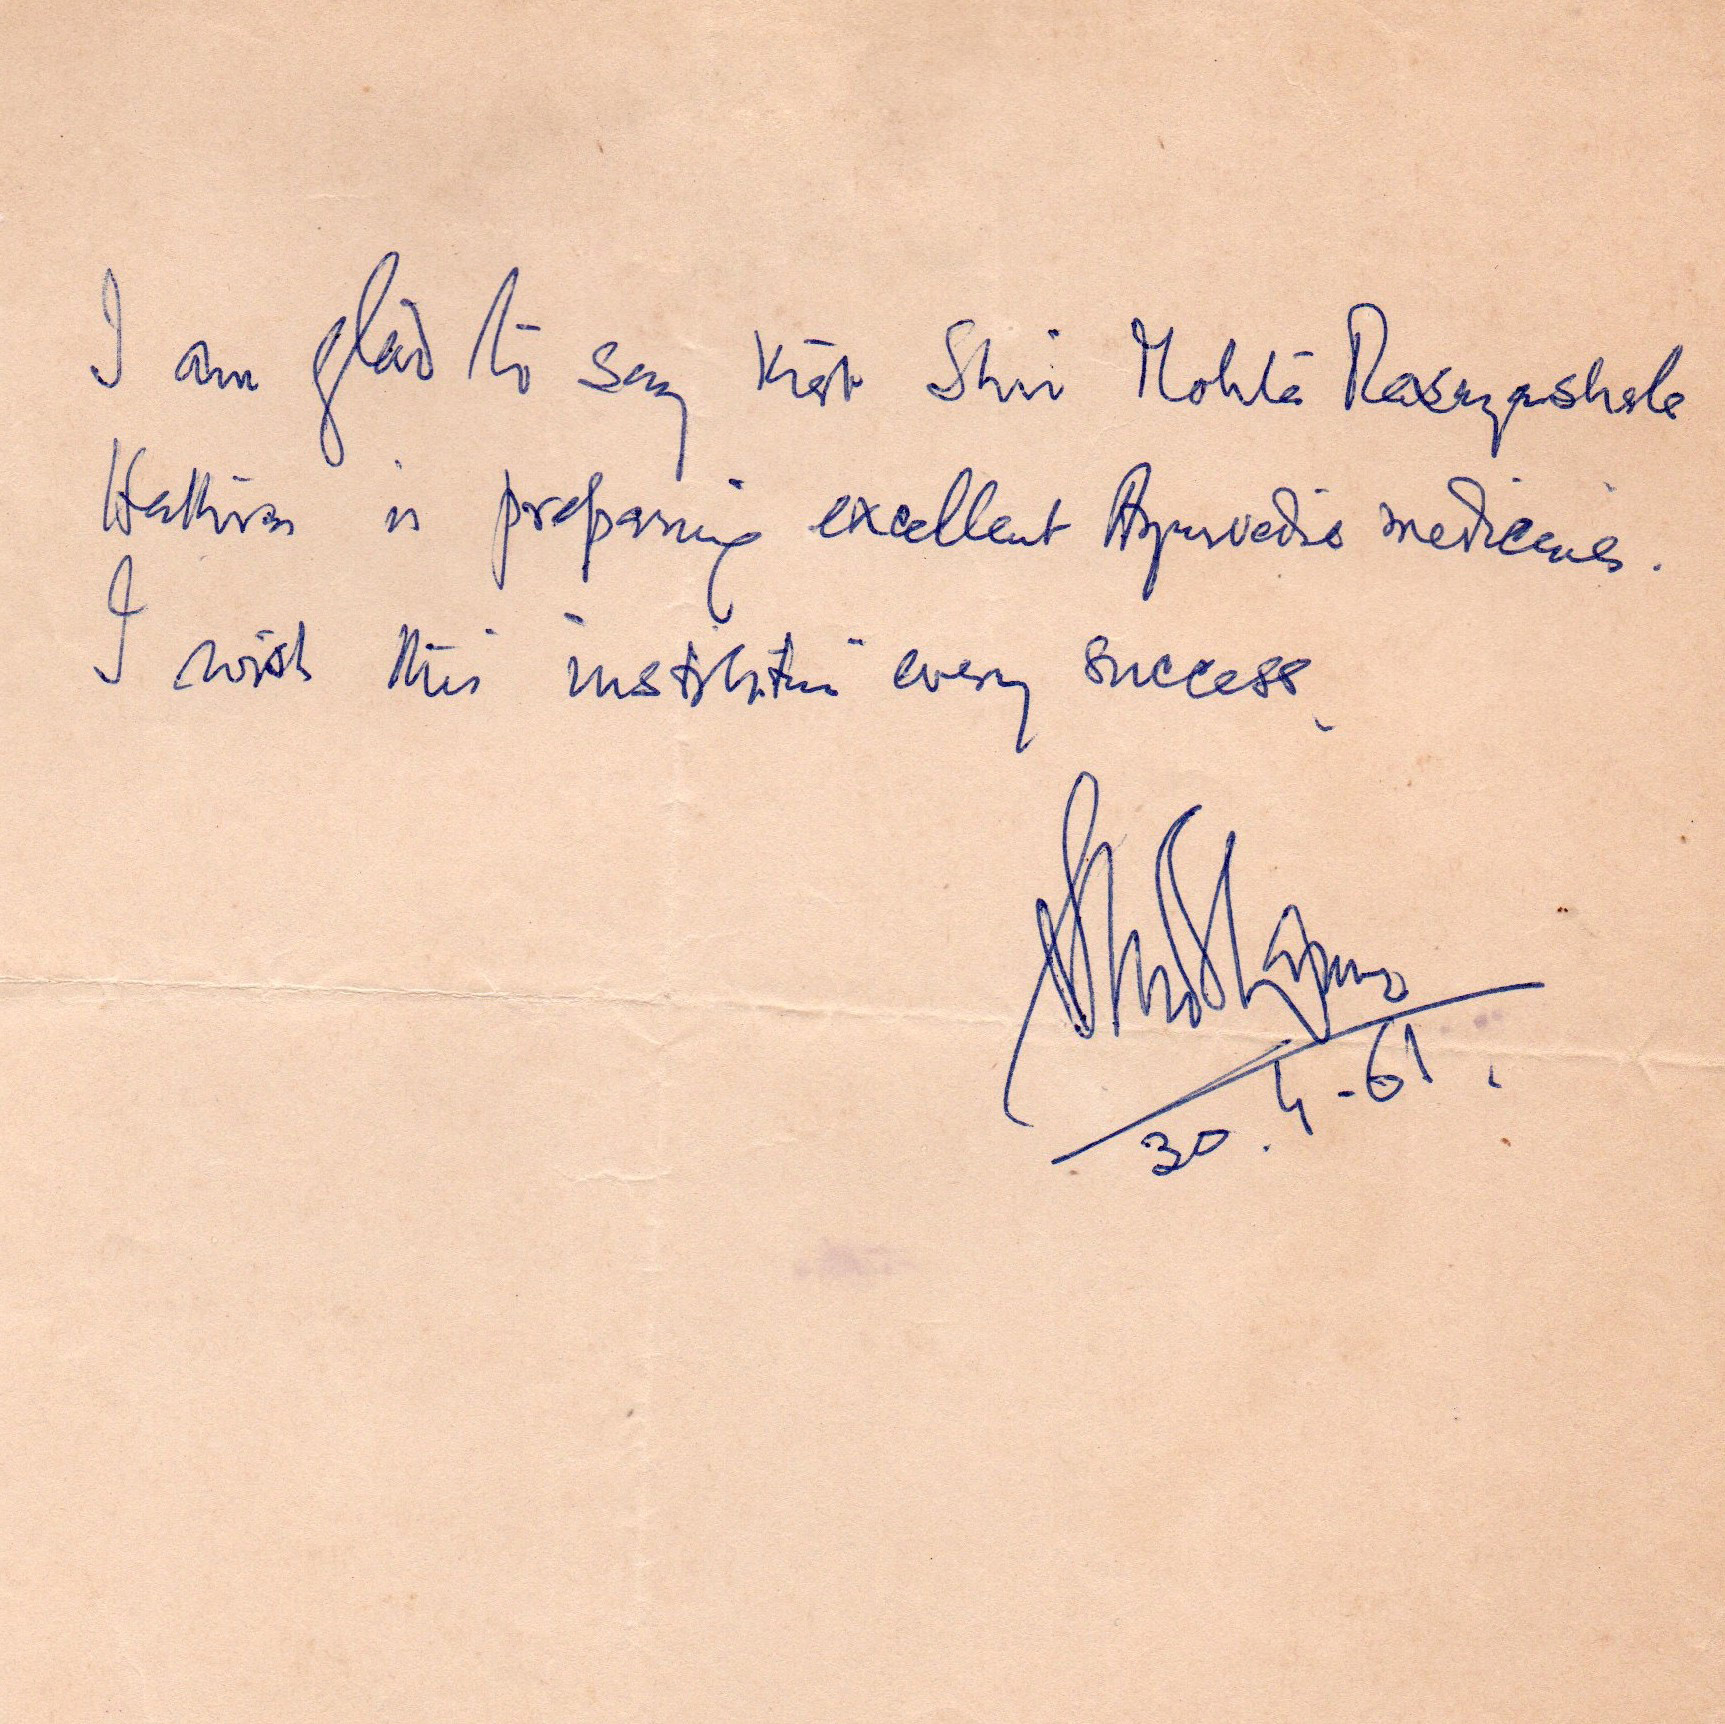 I am glad to say that Shri Mohta Rasayanshala
Hathras is preparing excellent Ayurvedic medicines.
I wish this institution every success.
30.4-61.